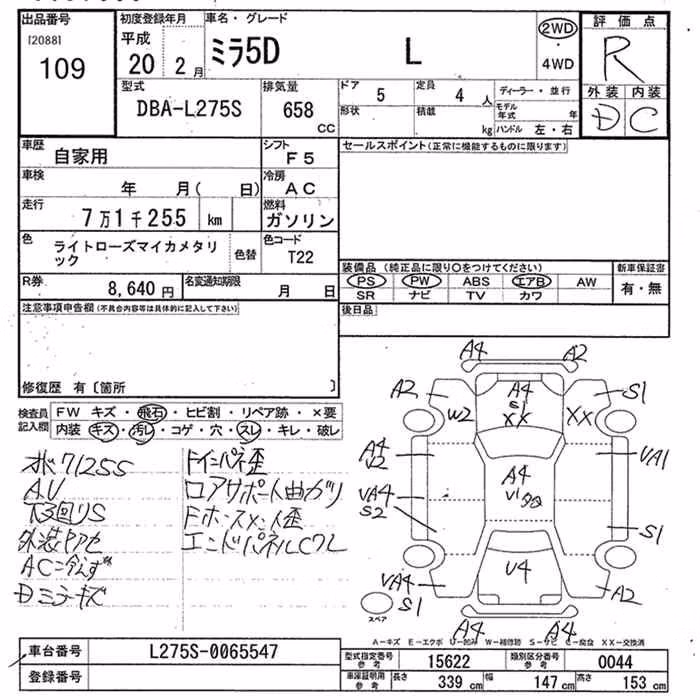 出品番号
[2088]
109
初度登録年月
平成
20 2 月
車名・グレード
ミラ5D L
2WD
・
4WD
評価点
R
外装 内装
D C
型式
DBA-L275S
排気量
658
CC
ドア
5
定員
4 人
形状
積載
kg
ディーラー・並行
モデル年式 年
ハンドル 左・右
車歴
自家用
シフト
F5
車検
年 月( 日)
冷房
AC
走行
7万1千255 km
燃料
ガソリン
色
ライトローズマイカメタリック
色替
色コード
T22
R券
8,640 円
名変通知期限
月 日
セールスポイント(正常に機能するものに限ります)
装備品 (純正品に限り○をつけてください)
PS PW ABS エアB AW
SR ナビ TV カワ
新車保証書
有・無
後日品
注意事項申告欄(不具合内容等は具体的に記入して下さい)
修復歴 有〔箇所 〕
検査員記入欄
FW キズ・飛石・ヒビ割・リペア跡・×要
内装 キズ・汚れ・コゲ・穴・スレ・キレ・破レ
71255
AU
下回りS
AC
Dミラーキズ
ロアサポート曲ガリ
エンドパネル
A4 A2
A2 W2 A4 S1 XX XX S1
A4 U2
A4
VA1
VA4 S2
S1
VA4 S1
U4
A2
A4 A4
スペア
A-キズ E-エクボ U-凹み W-補修跡 S-サビ C-腐食 XX-交換済
車台番号
L275S-0065547
登録番号
型式指定番号 参考
15622
類別区分番号 参考
0044
車庫証明用 参考
長さ 339 cm 幅 147 cm 高さ 153 cm